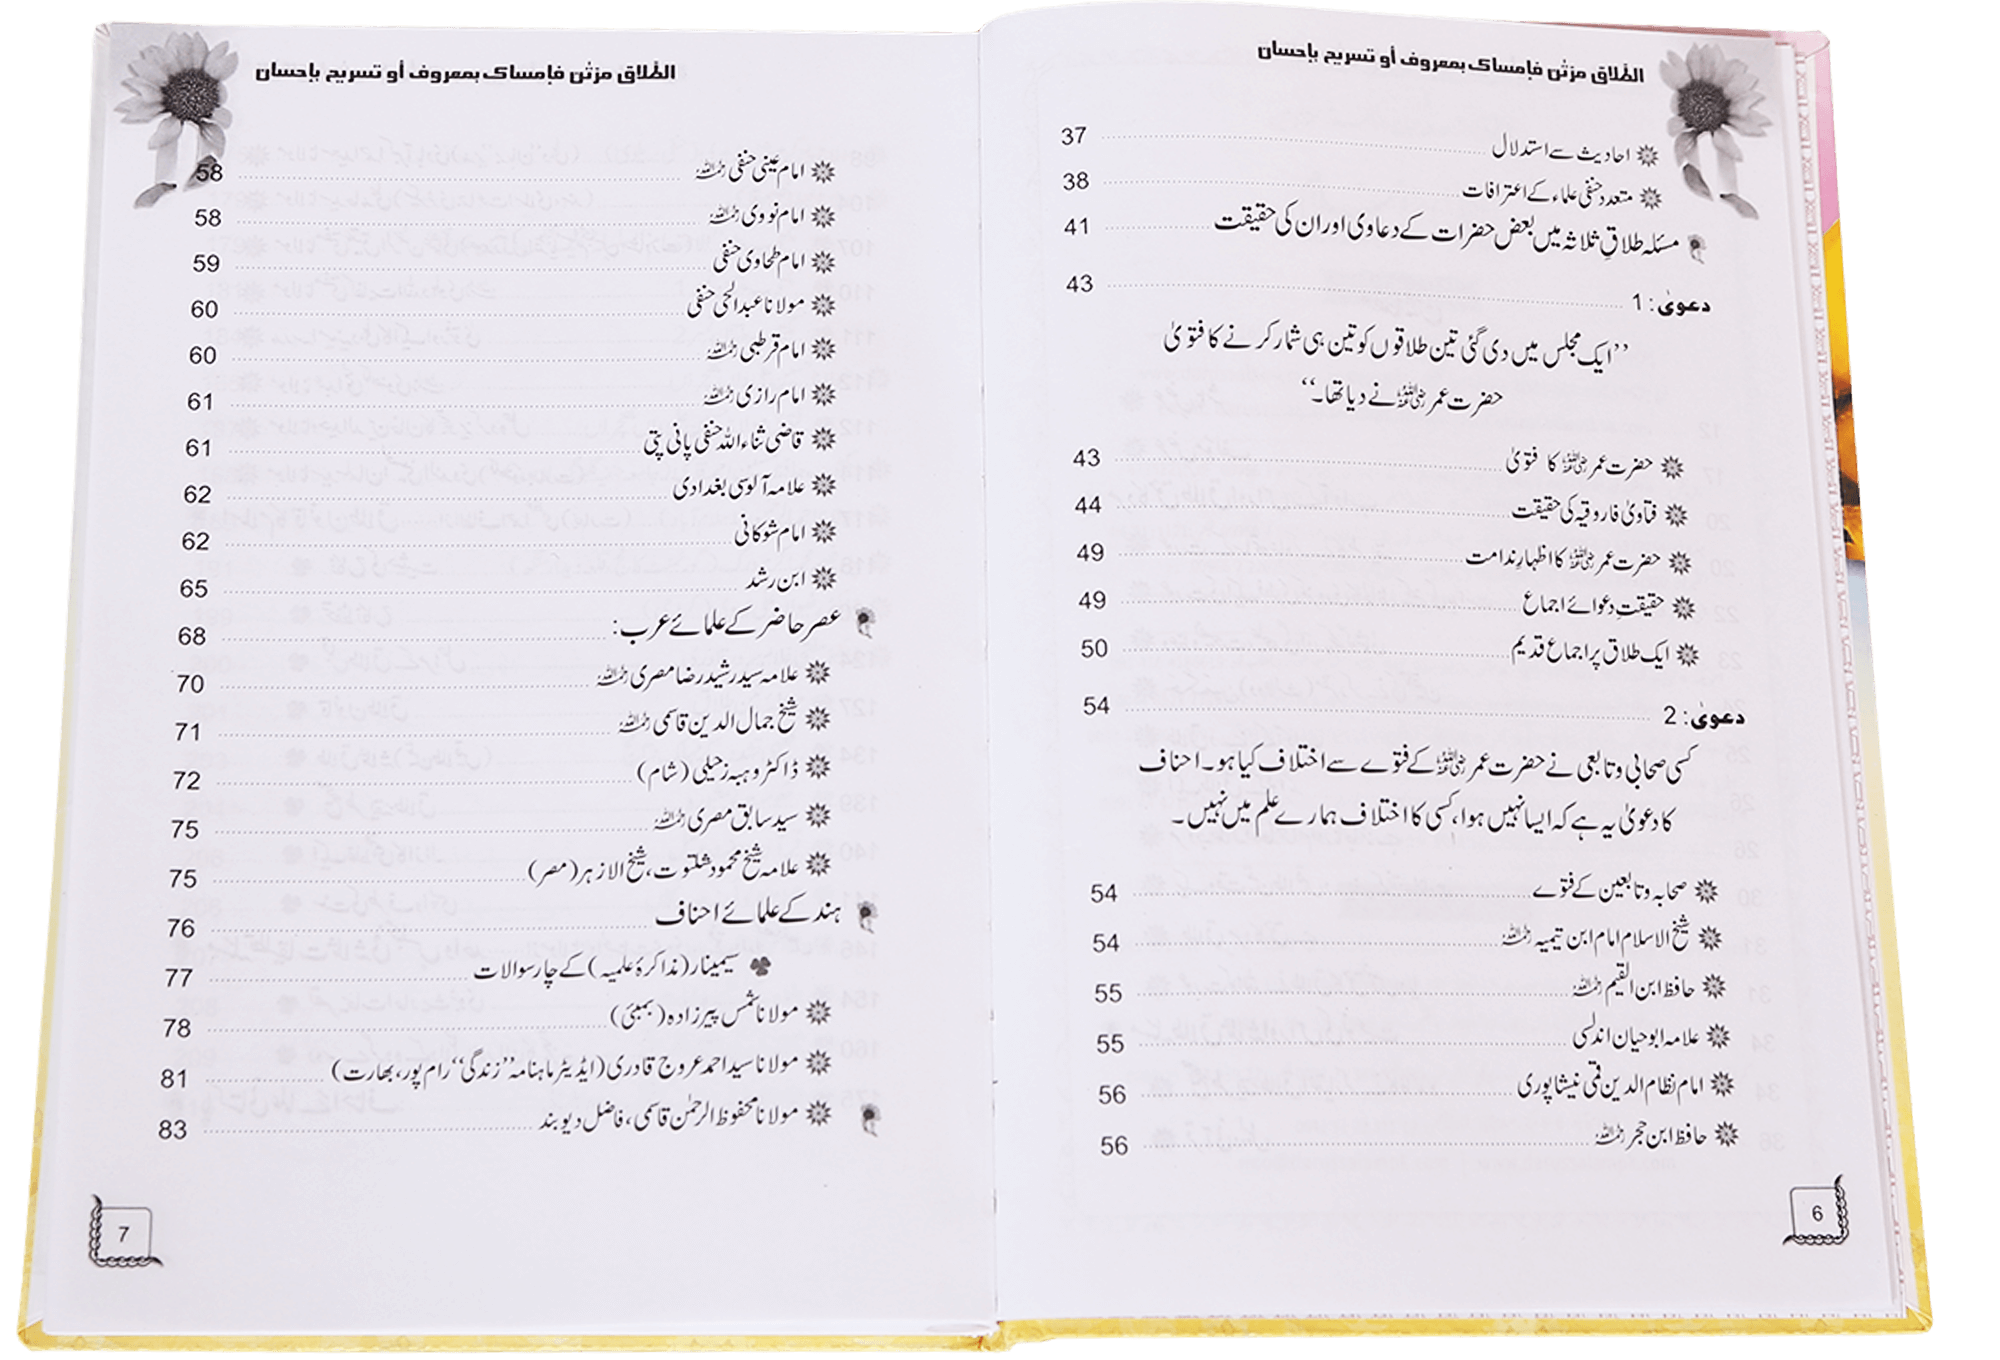 الطلاق مرتٰن فإمساک بمعروف أو تسریح بإحسان
احادیث سے استدلال 37
متعدد حنفی علماء کے اعترافات 38
مسئلہ طلاقِ ثلاثہ میں بعض حضرات کے دعاوی اور ان کی حقیقت 41
دعویٰ: 1 43
’’ایک مجلس میں دی گئی تین طلاقوں کو تین ہی شمار کرنے کا فتویٰ
حضرت عمر رضی اللہ عنہ نے دیا تھا۔‘‘
حضرت عمر رضی اللہ عنہ کا فتویٰ 43
فتاویٰ فاروقیہ کی حقیقت 44
حضرت عمر رضی اللہ عنہ کا اظہارِ ندامت 49
حقیقتِ دعوائے اجماع 49
ایک طلاق پر اجماع قدیم 50
دعویٰ: 2 54
کسی صحابی و تابعی نے حضرت عمر رضی اللہ عنہ کے فتوے سے اختلاف کیا ہو۔ احناف
کا دعویٰ یہ ہے کہ ایسا نہیں ہوا، کسی کا اختلاف ہمارے علم میں نہیں۔
صحابہ و تابعین کے فتوے 54
شیخ الاسلام امام ابن تیمیہ رحمہ اللہ 54
حافظ ابن القیم رحمہ اللہ 55
علامہ ابوحیان اندلسی 55
امام نظام الدین قمی نیشاپوری 56
حافظ ابن حجر رحمہ اللہ 56
6
الطلاق مرتٰن فإمساک بمعروف أو تسریح بإحسان
امام عینی حنفی رحمہ اللہ 58
امام نووی رحمہ اللہ 58
امام طحاوی حنفی 59
مولانا عبدالحی حنفی 60
امام قرطبی رحمہ اللہ 60
امام رازی رحمہ اللہ 61
قاضی ثناء اللہ حنفی پانی پتی 61
علامہ آلوسی بغدادی 62
امام شوکانی 62
ابن رشد 65
عصر حاضر کے علمائے عرب: 68
علامہ سید رشید رضا مصری رحمہ اللہ 70
شیخ جمال الدین قاسمی رحمہ اللہ 71
ڈاکٹر وہبہ زحیلی (شام) 72
سید سابق مصری رحمہ اللہ 75
علامہ شیخ محمود شلتوت، شیخ الازہر (مصر) 75
ہند کے علمائے احناف 76
سیمینار (مذاکرۂ علمیہ) کے چار سوالات 77
مولانا شمس پیرزادہ (بمبئی) 78
مولانا سید احمد عروج قادری (ایڈیٹر ماہنامہ ’’زندگی‘‘ رام پور، بھارت) 81
مولانا محفوظ الرحمٰن قاسمی، فاضل دیوبند 83
7